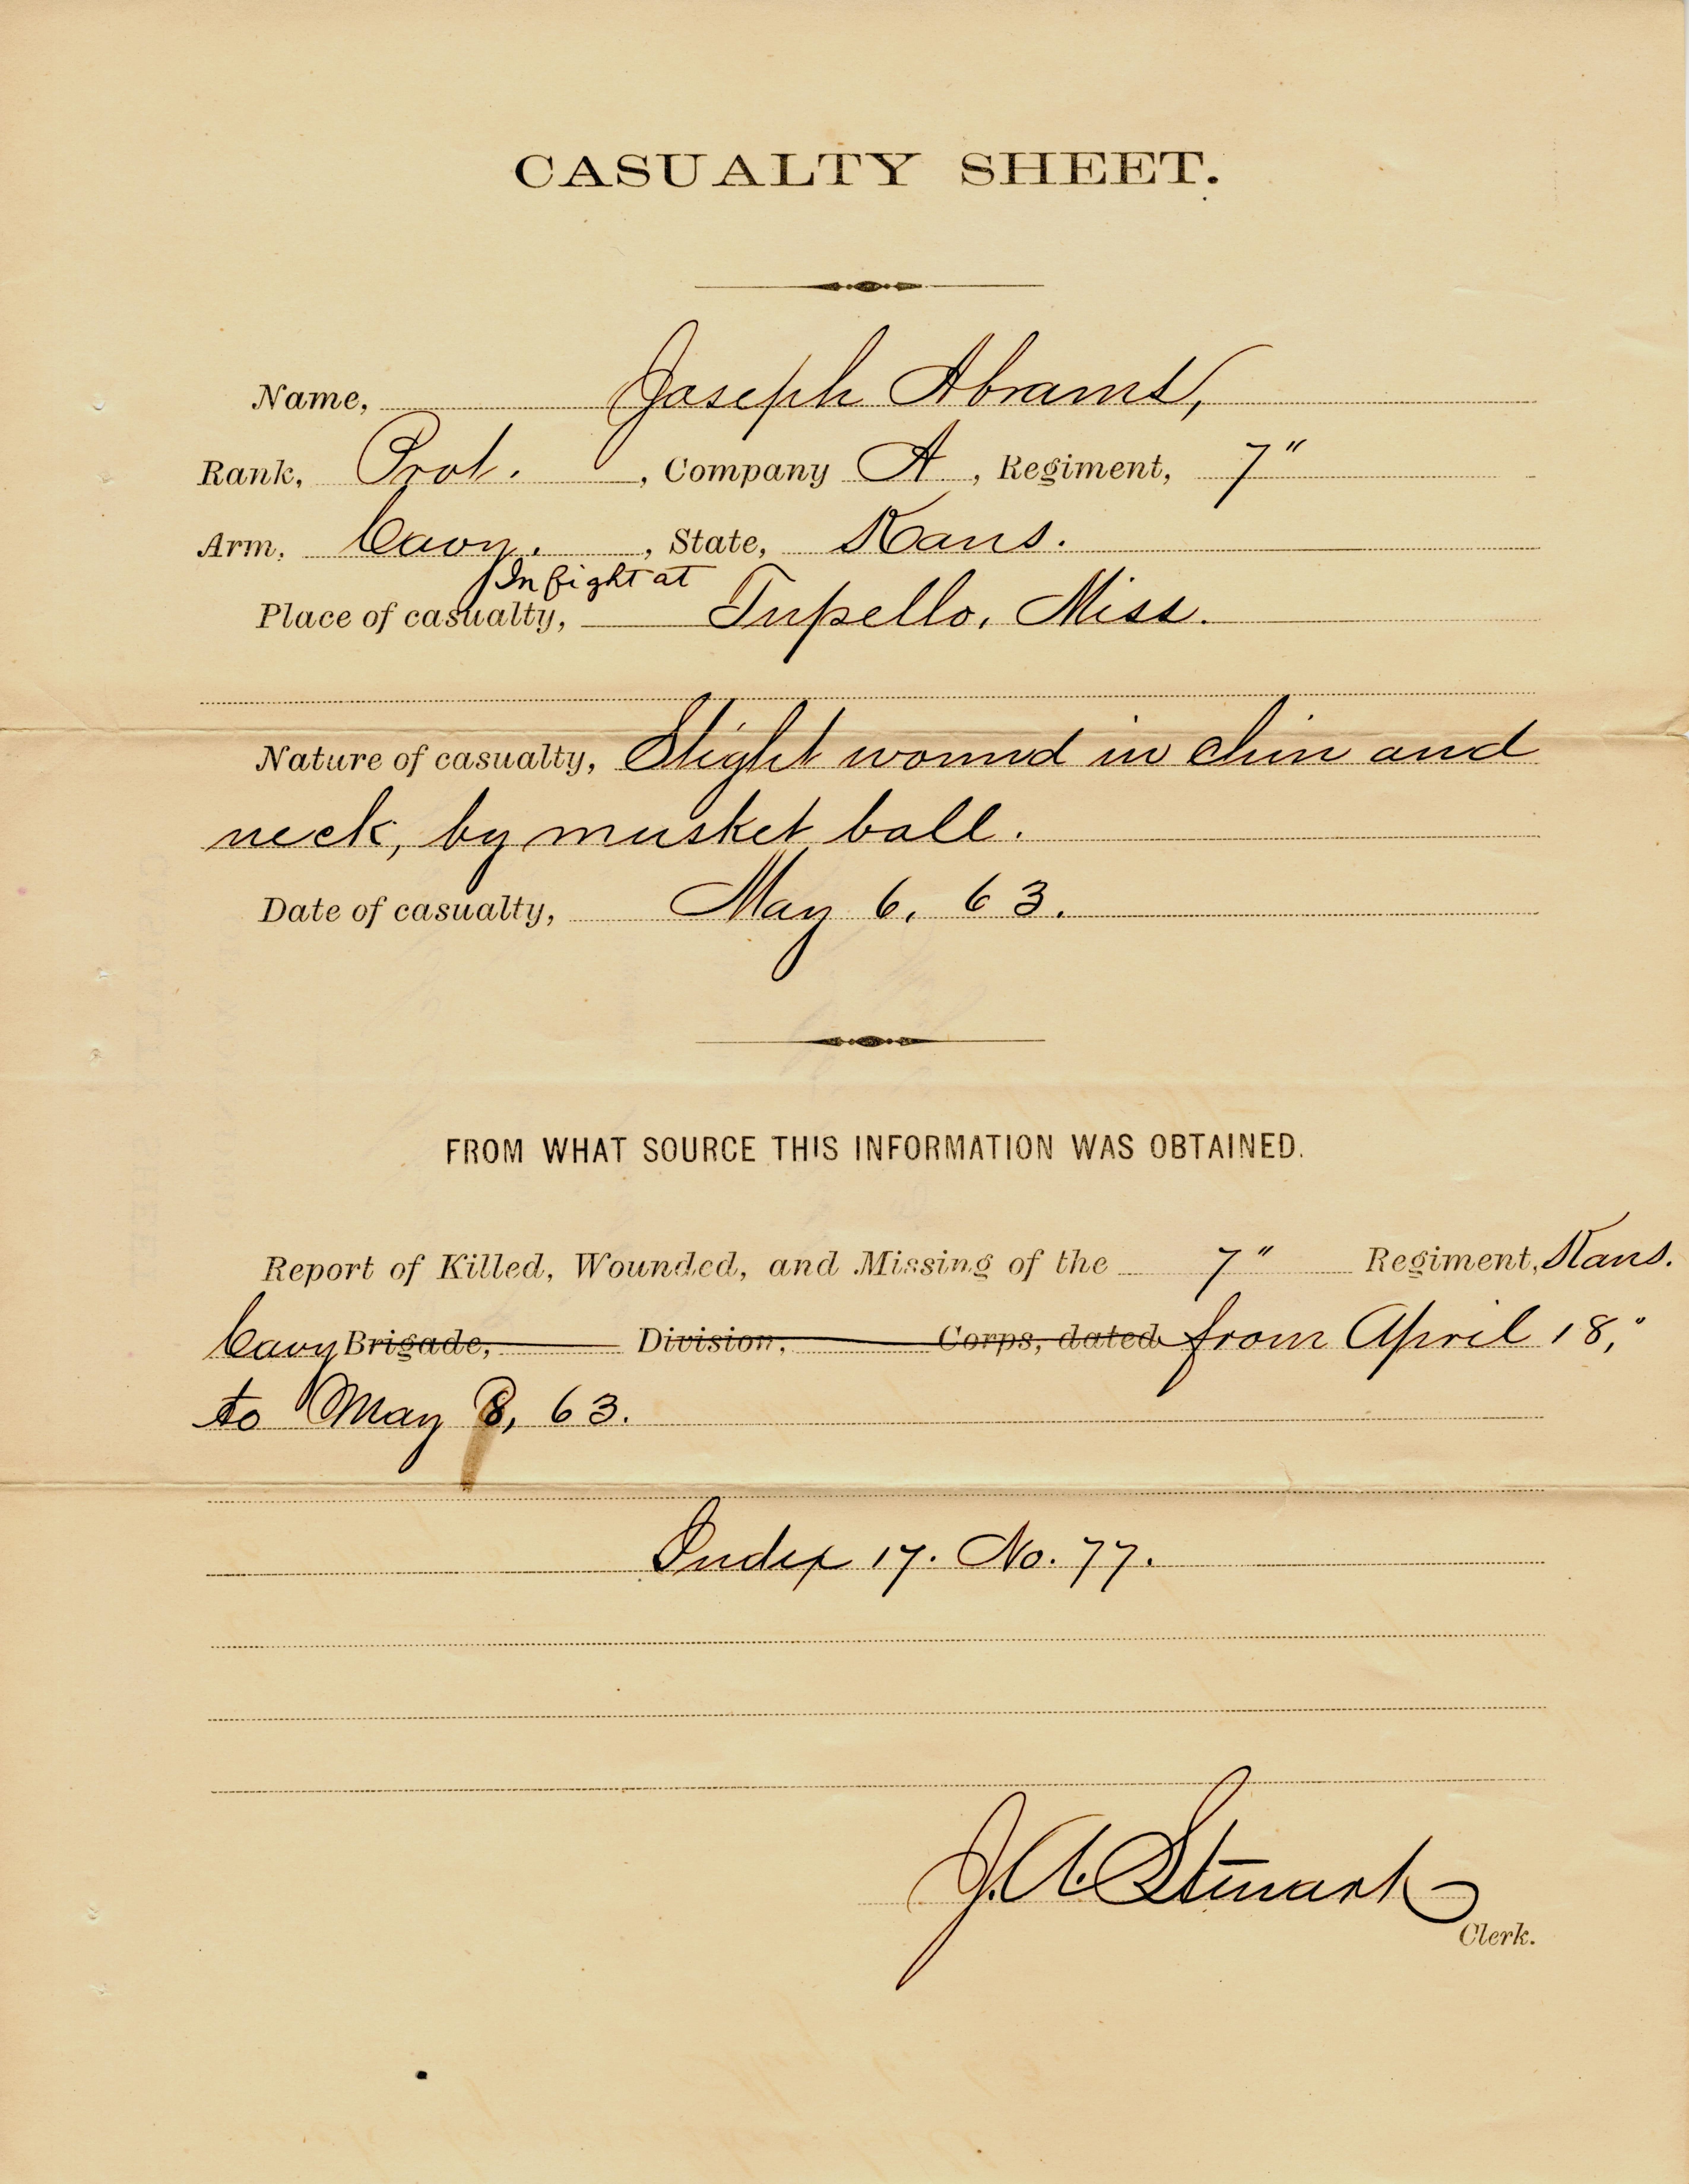 CASUALTY SHEET.
Name, Joseph Abrams,
Rank, Prvt. , Company A , Regiment, 7"
Arm, Cavy. , State, Kans.
In fight at
Place of casualty, Tupello, Miss.
Nature of casualty, Slight wound in chin and
neck, by musket ball.
Date of casualty, May 6, 63.
FROM WHAT SOURCE THIS INFORMATION WAS OBTAINED.
Report of Killed, Wounded, and Missing of the 7" Regiment, Kans.
Cavy Brigade, Division, Corps, dated from April 18,"
to May 8, 63.
Index 17. No. 77.
J. A. Stewart
Clerk.